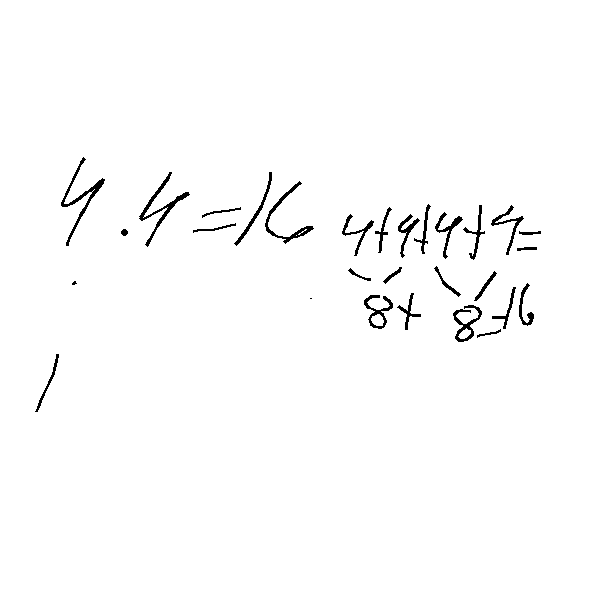 4 . 4 = 16
4 + 4 + 4 + 4 =
8 + 8 = 16